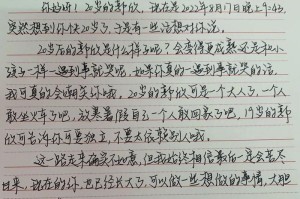 你好呀！20岁的郭欣，现在是2022年8月17日晚上9:43，
突然想到你快20岁了，于是有一些话想对你说。
20岁后的郭欣是什么样子呢？会变得更成熟还是和小
孩子一样一遇到事就哭呢，如果你真的一遇到事就哭的话，
我可真的会嘲笑你哦，20岁的郭欣可是个大人了，一个人
敢坐火车了吧，放寒暑假自己一个人敢回家了吧，19岁的郭
欣可告诉你可要独立，不要太依赖别人哦。
这一路走来确实不容易，但我始终相信最后一定会苦尽
甘来，现在的你，也已经长大了，可以做一些想做的事情，大胆